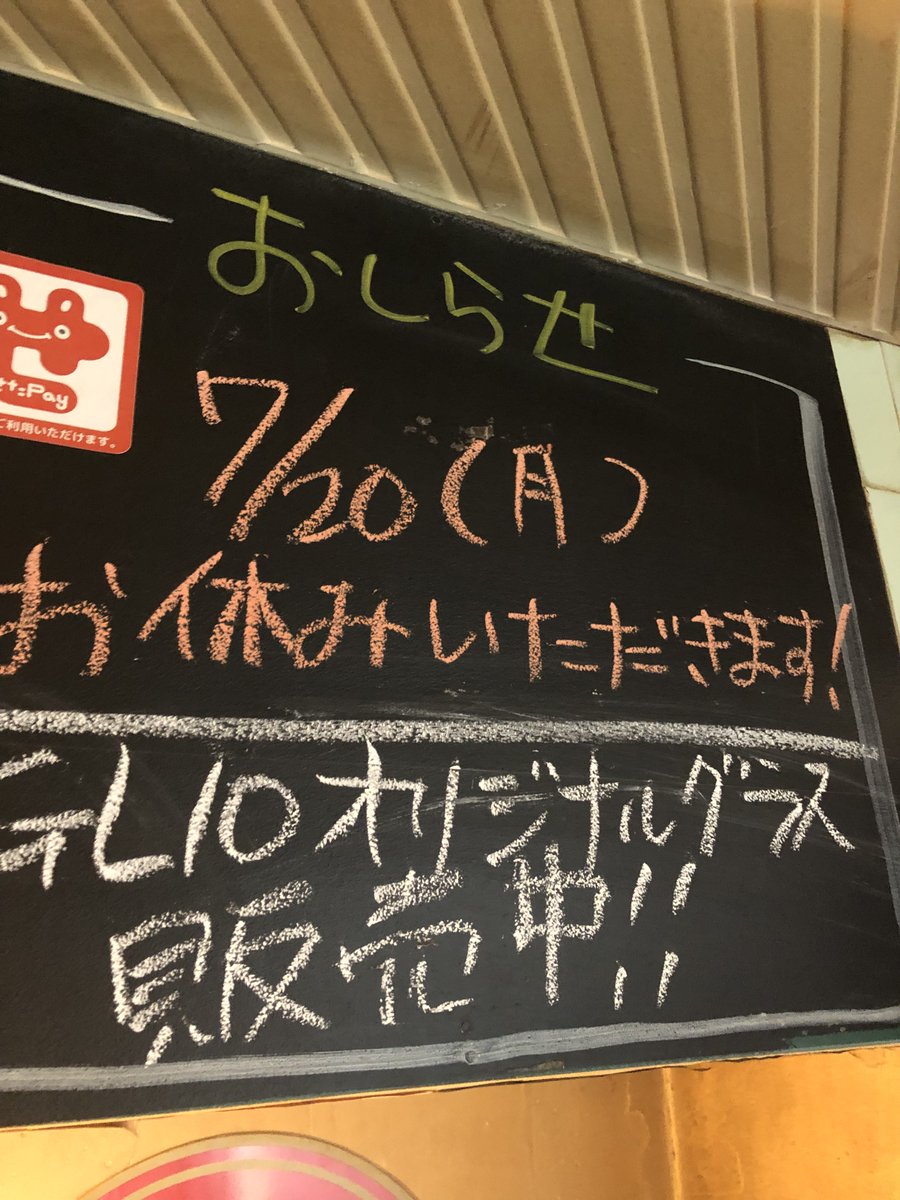 おしらせ
7/20(月)
お休みいただきます!
10オリジナルグラス
販売中!!
Pay
ご利用いただけます。